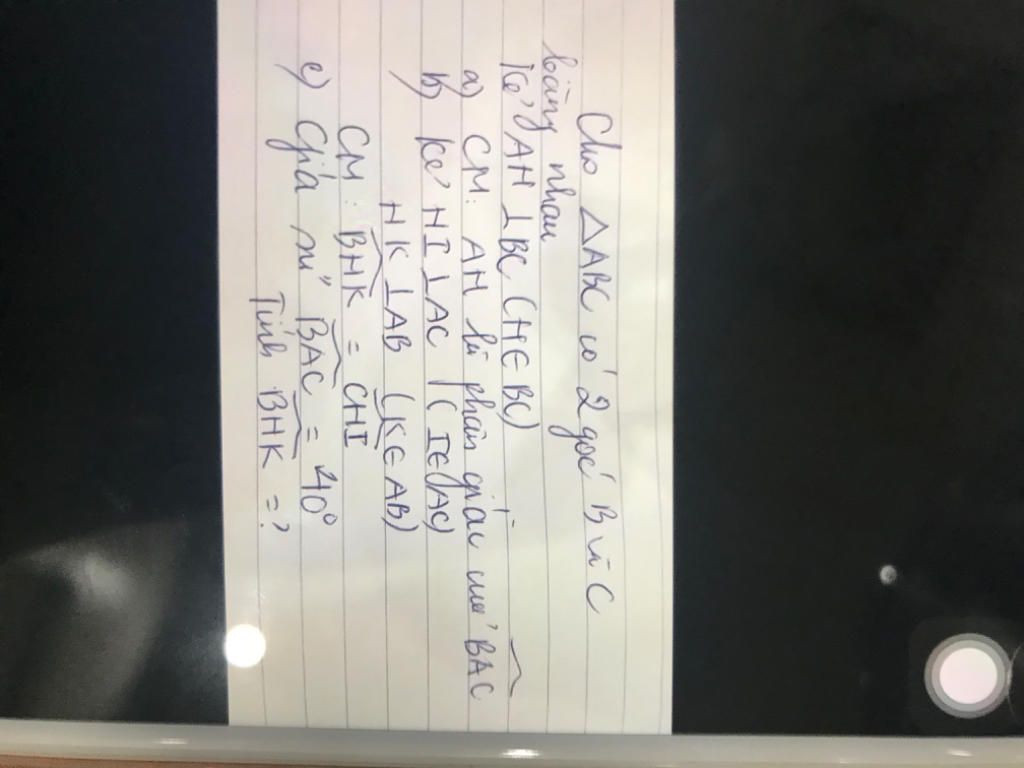 Cho △ABC có 2 góc B và C
bằng nhau
Kẻ AH ⊥ BC (H∈BC)
a) CM: AH là phân giác của BAC
b) Kẻ HI ⊥ AC (I∈AC)
HK ⊥ AB (K∈AB)
CM: BHK = CHI
c) Giả sử BAC = 40°
Tính BHK = ?